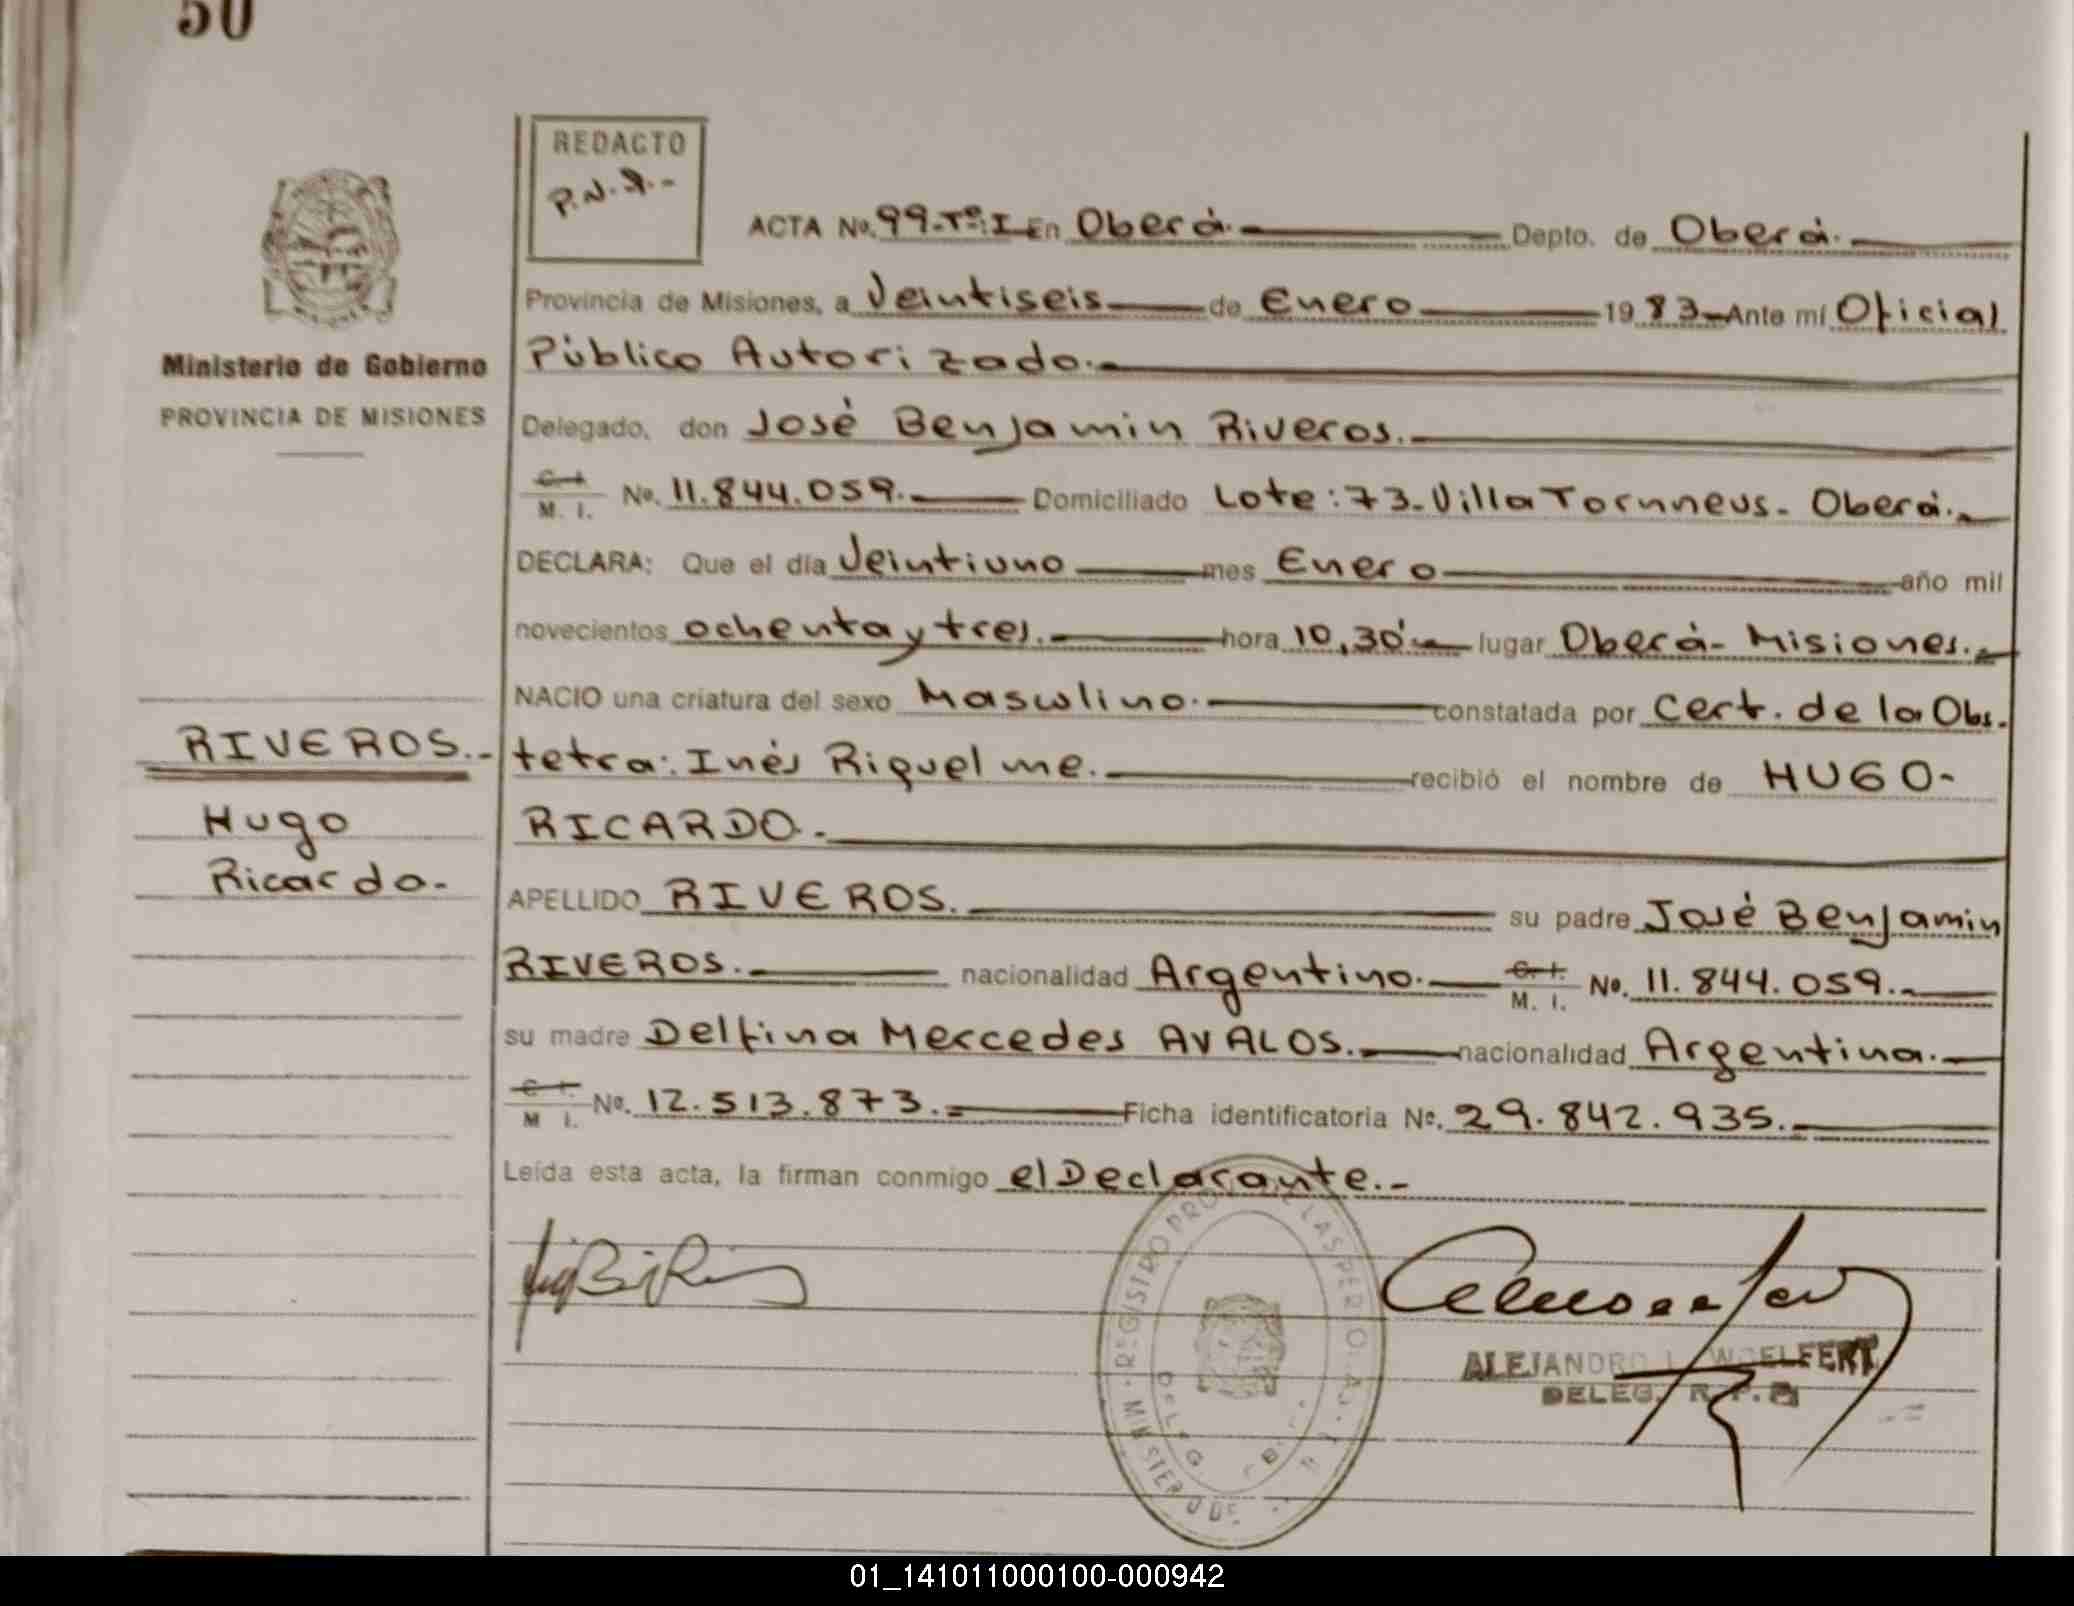 50
REDACTO
P.N.R.-
ACTA No. 99-Tº:I En Oberá. Depto. de Oberá.
Provincia de Misiones, a Veintiseis de Enero 1983 Ante mí Oficial
Ministerio de Gobierno
Público Autorizado.
PROVINCIA DE MISIONES
Delegado, don José Benjamin Riveros.
C. I. M. I. No. 11.844.059. Domiciliado Lote: 73- Villa Tornneus- Oberá.
DECLARA: Que el día Veintiuno mes Enero año mil
novecientos ochenta y tres. hora 10,30' lugar Oberá- Misiones.
NACIO una criatura del sexo Masculino. constatada por Cert. de la Obs.
RIVEROS.-
tetra: Inés Riquelme. recibió el nombre de HUGO-
Hugo
RICARDO.
Ricardo.
APELLIDO RIVEROS. su padre José Benjamin
RIVEROS. nacionalidad Argentino. C. I. M. I. No. 11.844.059.
su madre Delfina Mercedes AVALOS. nacionalidad Argentina.
C. I. M I. No. 12.513.873. Ficha identificatoria No. 29.842.935.
Leída esta acta, la firman conmigo el Declarante.-
ALEJANDRO L. WOELFERT
DELEG. R. P.
MINISTERIO DE REGISTRO PRO LAS PER
DELEG.
01_141011000100-000942